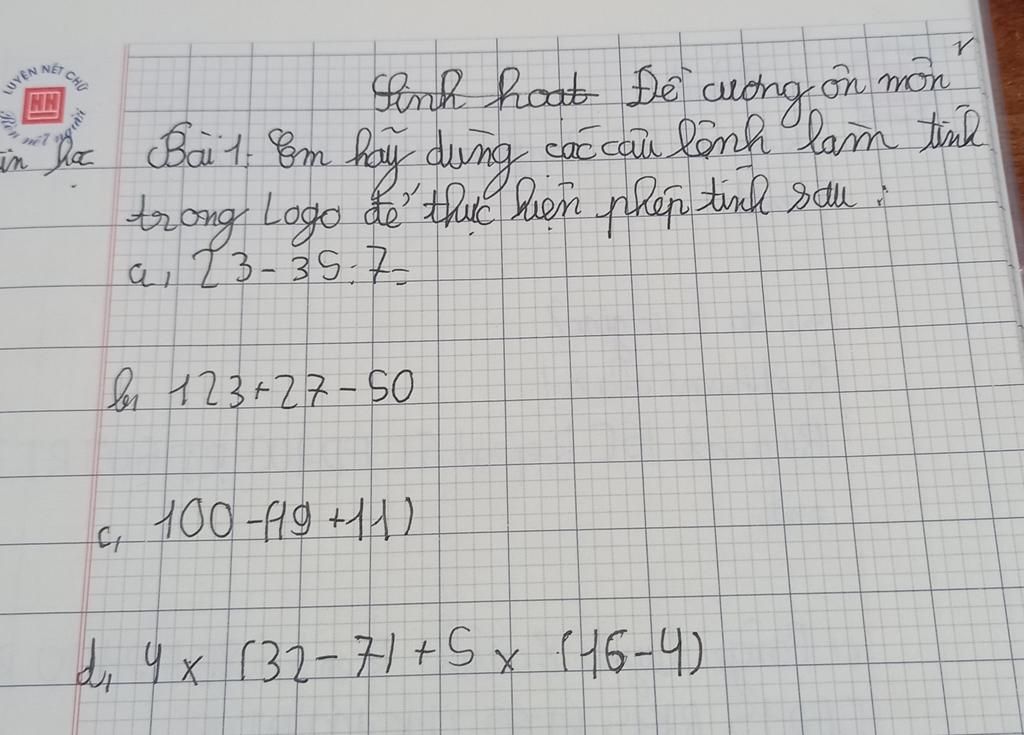 LUYỆN NÉT CHỮ
HH
Rèn nết người
Sinh hoạt Đề cương ôn môn
in học
Bài 1: Em hãy dùng các câu lệnh làm tính
trong Logo để thực hiện phép tính sau:
a, 23 - 35 : 7 =
b, 123 + 27 - 50
c, 100 - (19 + 11)
d, 4 x (32 - 7) + 5 x (16 - 4)